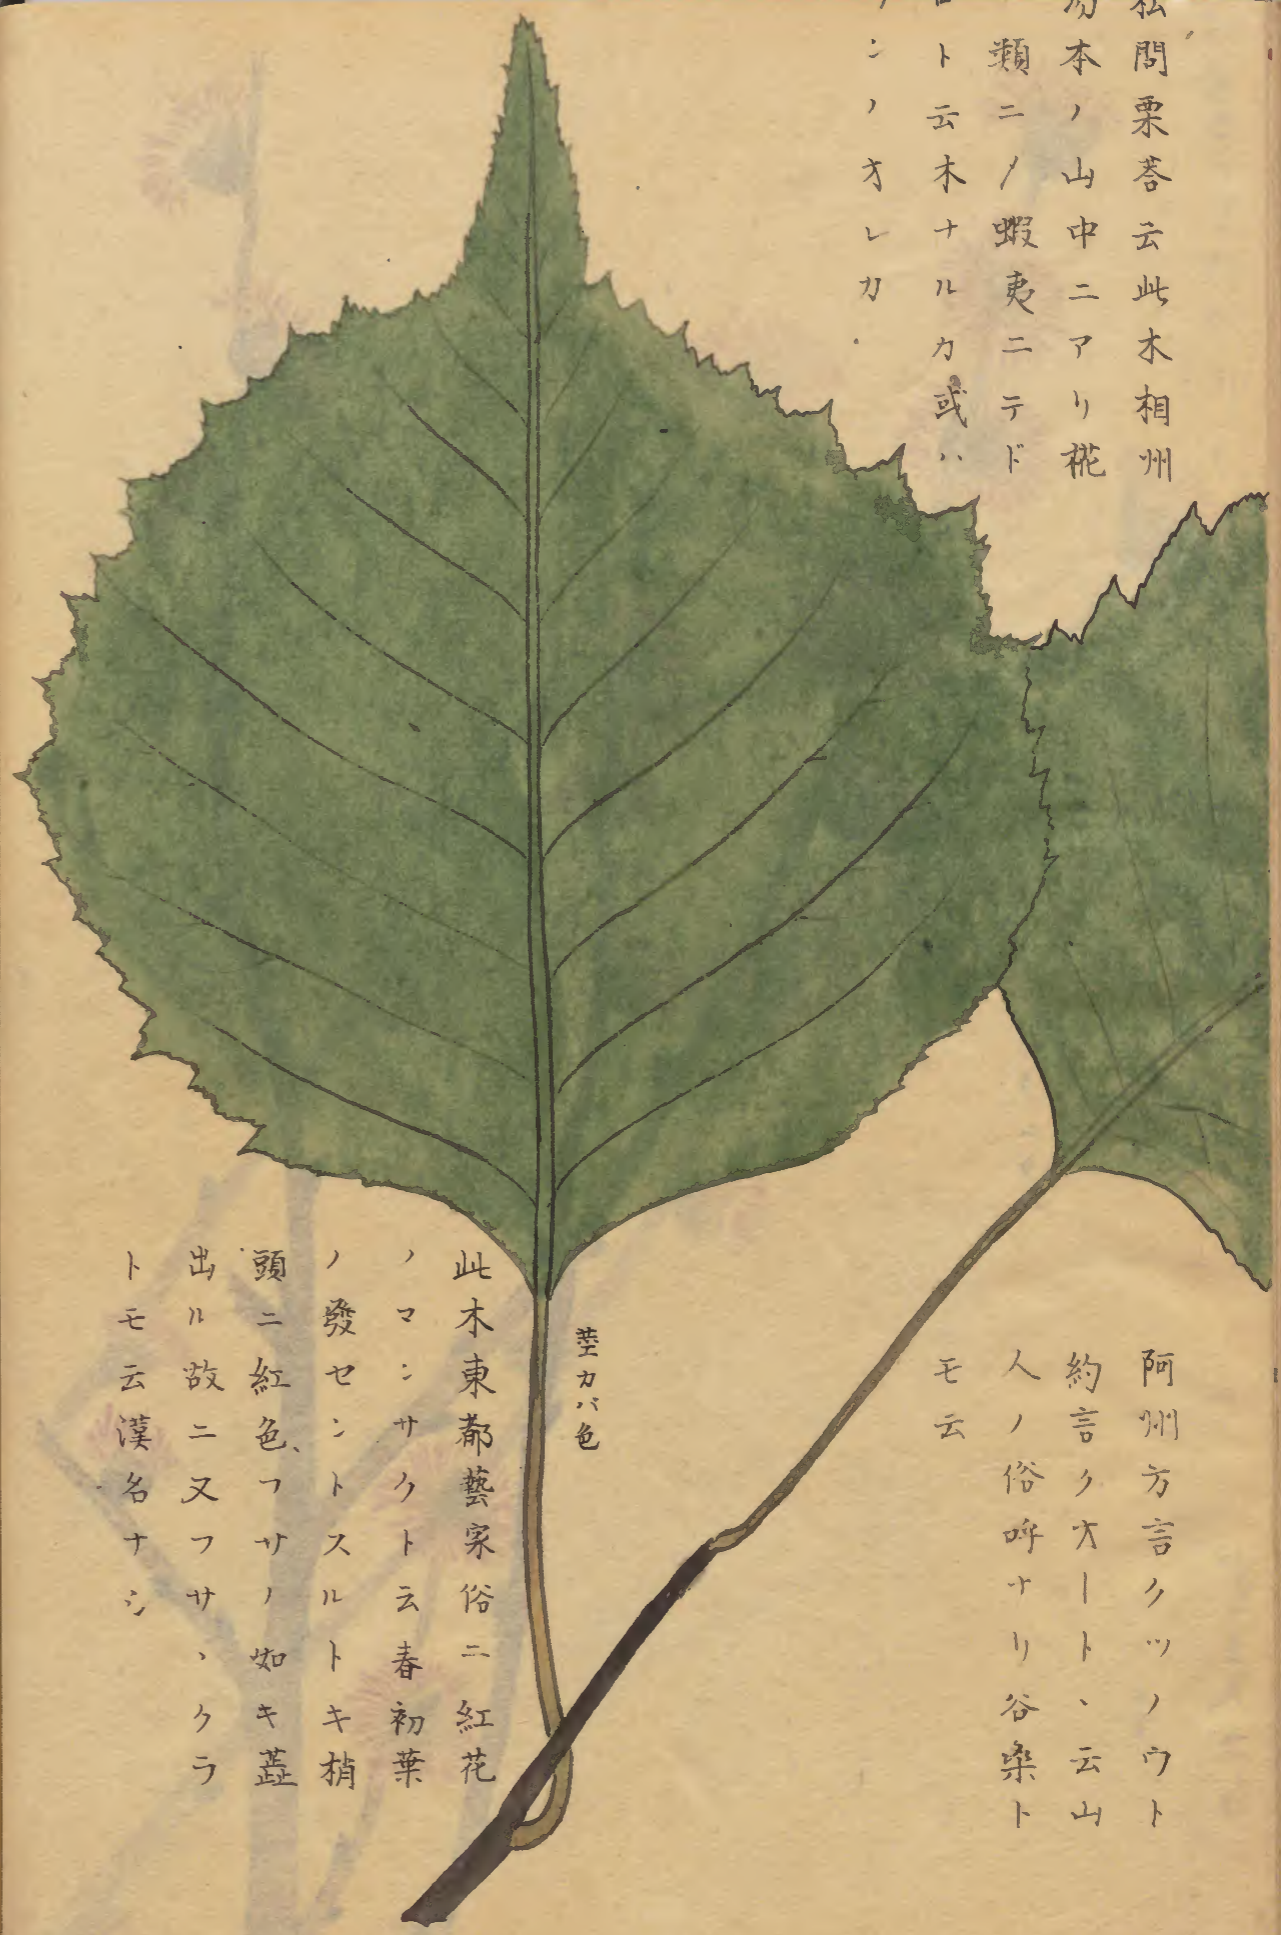 私問栗答云此木相州
本ノ山中ニアリ椛
類ニノ蝦夷ニテド
ト云木ナルカ或ハ
ンノオレカ
阿州方言クツノウト
約言クオートヽ云山
人ノ俗呼ナリ谷桑ト
モ云
茎カバ色
此木東都藝家俗ニ紅花
ノマンサクト云春初葉
ノ發セントスルトキ梢
頭ニ紅色、フサノ如キ蕋
出ル故ニ又フサヽクラ
トモ云漢名ナシ